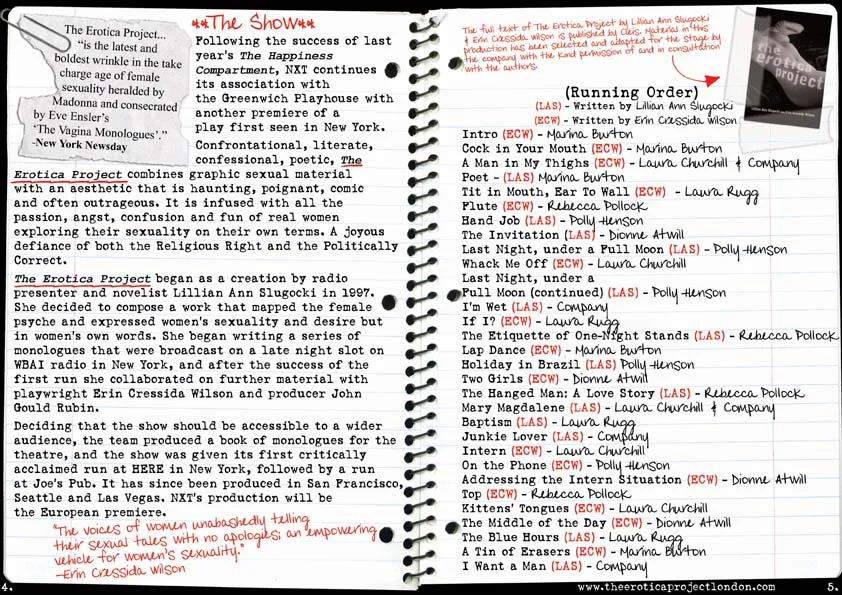 The Erotica Project...
"is the latest and
boldest wrinkle in the take
charge age of female
sexuality heralded by
Madonna and consecrated
by Eve Ensler's
'The Vagina Monologues'."
-New York Newsday
**The Show**
Following the success of last
year's The Happiness
Compartment, NXT continues
its association with
the Greenwich Playhouse with
another premiere of a
play first seen in New York.
Confrontational, literate,
confessional, poetic, The
Erotica Project combines graphic sexual material
with an aesthetic that is haunting, poignant, comic
and often outrageous. It is infused with all the
passion, angst, confusion and fun of real women
exploring their sexuality on their own terms. A joyous
defiance of both the Religious Right and the Politically
Correct.
The Erotica Project began as a creation by radio
presenter and novelist Lillian Ann Slugocki in 1997.
She decided to compose a work that mapped the female
psyche and expressed women's sexuality and desire but
in women's own words. She began writing a series of
monologues that were broadcast on a late night slot on
WBAI radio in New York, and after the success of the
first run she collaborated on further material with
playwright Erin Cressida Wilson and producer John
Gould Rubin.
Deciding that the show should be accessible to a wider
audience, the team produced a book of monologues for the
theatre, and the show was given its first critically
acclaimed run at HERE in New York, followed by a run
at Joe's Pub. It has since been produced in San Francisco,
Seattle and Las Vegas. NXT's production will be
the European premiere.
"The voices of women unabashedly telling
their sexual tales with no apologies; an empowering
vehicle for women's sexuality."
-Erin Cressida Wilson
4.
The full text of The Erotica Project by Lillian Ann Slugocki
& Erin Cressida Wilson is published by Cleis. Material in this
production has been selected and adapted for the stage by
the company with the kind permission of and in consultation
with the authors.
the
erotica
project
(Running Order)
(LAS) - Written by Lillian Ann Slugocki
(ECW) - Written by Erin Cressida Wilson
Intro (ECW) - Marina Burton
Cock in Your Mouth (ECW) - Marina Burton
A Man in My Thighs (ECW) - Laura Churchill & Company
Poet - (LAS) Marina Burton
Tit in Mouth, Ear To Wall (ECW) - Laura Rugg
Flute (ECW) - Rebecca Pollock
Hand Job (LAS) - Polly Henson
The Invitation (LAS) - Dionne Atwill
Last Night, under a Full Moon (LAS) - Polly Henson
Whack Me Off (ECW) - Laura Churchill
Last Night, under a
Full Moon (continued) (LAS) - Polly Henson
I'm Wet (LAS) - Company
If I? (ECW) - Laura Rugg
The Etiquette of One-Night Stands (LAS) - Rebecca Pollock
Lap Dance (ECW) - Marina Burton
Holiday in Brazil (LAS) Polly Henson
Two Girls (ECW) - Dionne Atwill
The Hanged Man: A Love Story (LAS) - Rebecca Pollock
Mary Magdalene (LAS) - Laura Churchill & Company
Baptism (LAS) - Laura Rugg
Junkie Lover (LAS) - Company
Intern (ECW) - Laura Churchill
On the Phone (ECW) - Polly Henson
Addressing the Intern Situation (ECW) - Dionne Atwill
Top (ECW) - Rebecca Pollock
Kittens' Tongues (ECW) - Laura Churchill
The Middle of the Day (ECW) - Dionne Atwill
The Blue Hours (LAS) - Laura Rugg
A Tin of Erasers (ECW) - Marina Burton
I Want a Man (LAS) - Company
www.theeroticaprojectlondon.com
5.